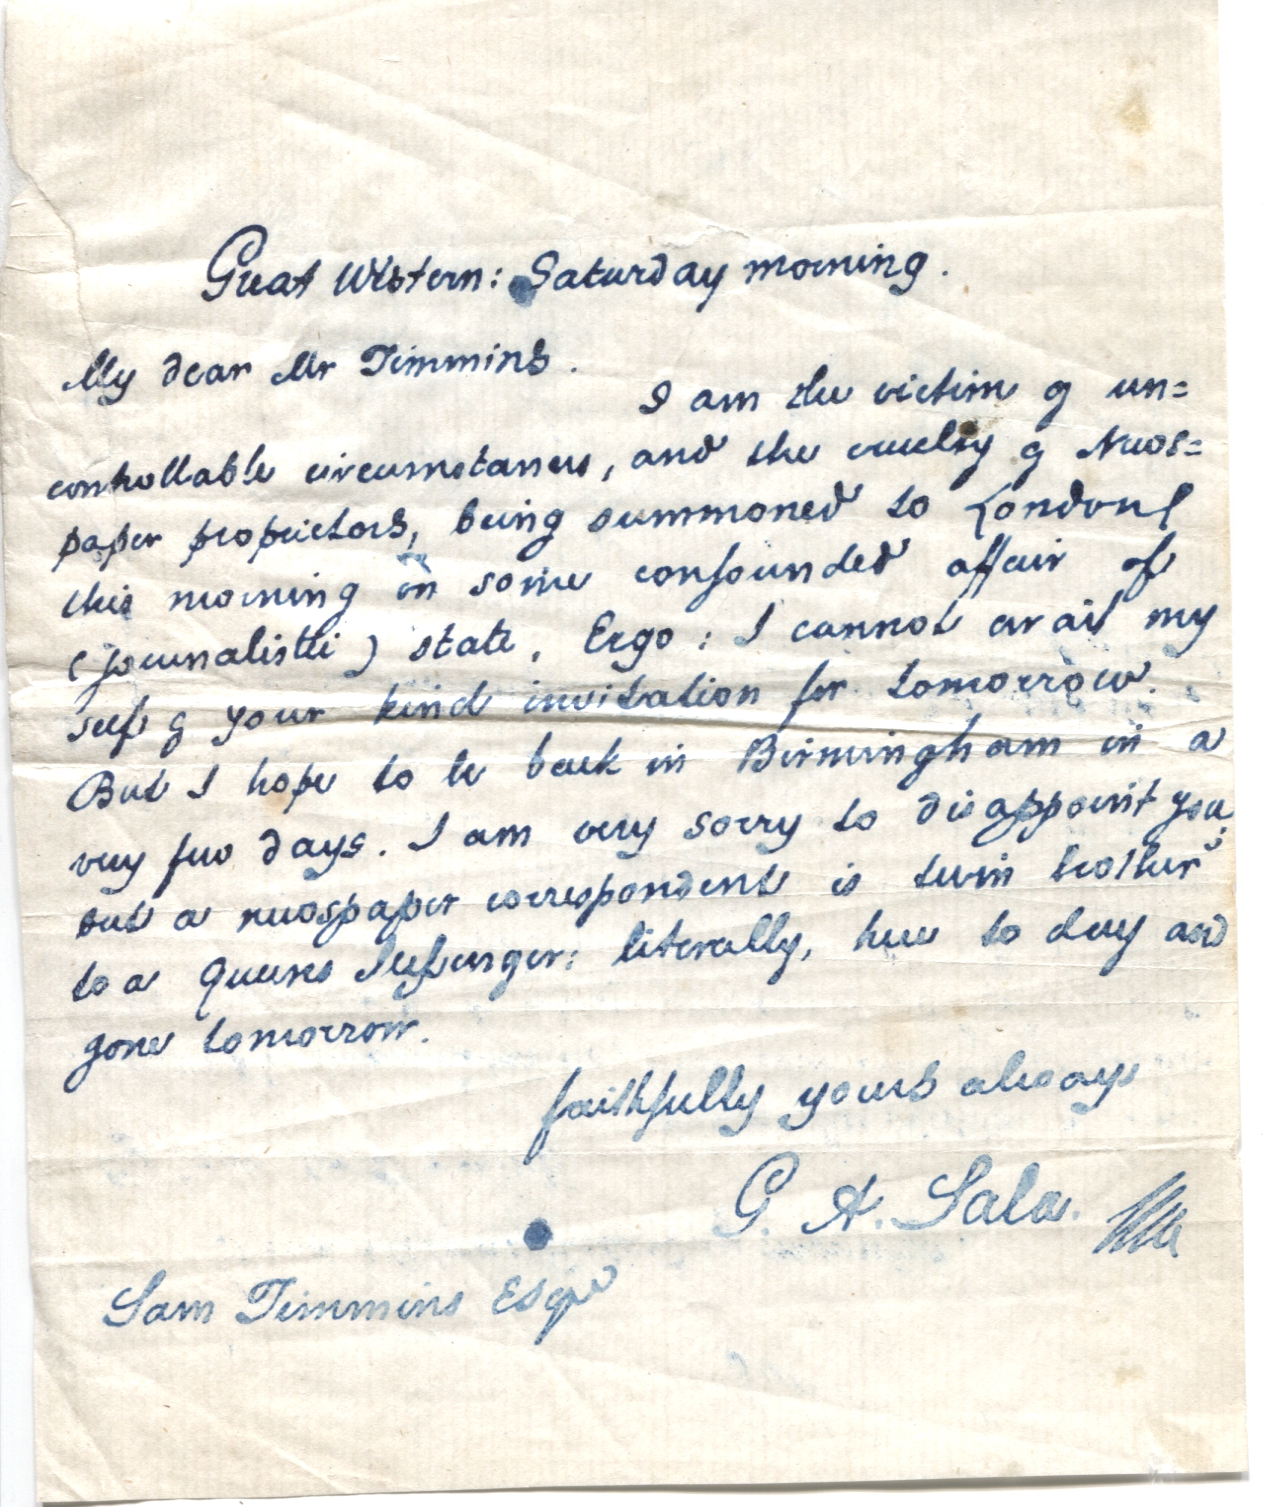 Great Western: Saturday morning.
My dear Mr Timmins.
I am the victim of un=
controllable circumstances, and the cruelty of News=
paper proprietors, being summoned to London
this morning on some confounded affair of
(journalistic) state. Ergo: I cannot avail my
self of your kind invitation for tomorrow.
But I hope to be back in Birmingham in a
very few days. I am very sorry to disappoint you,
but a newspaper correspondent is twin brother
to a Queens Messenger: literally, here to day and
gone tomorrow.
faithfully yours always
G. A. Sala.
Sam Timmins Esqre